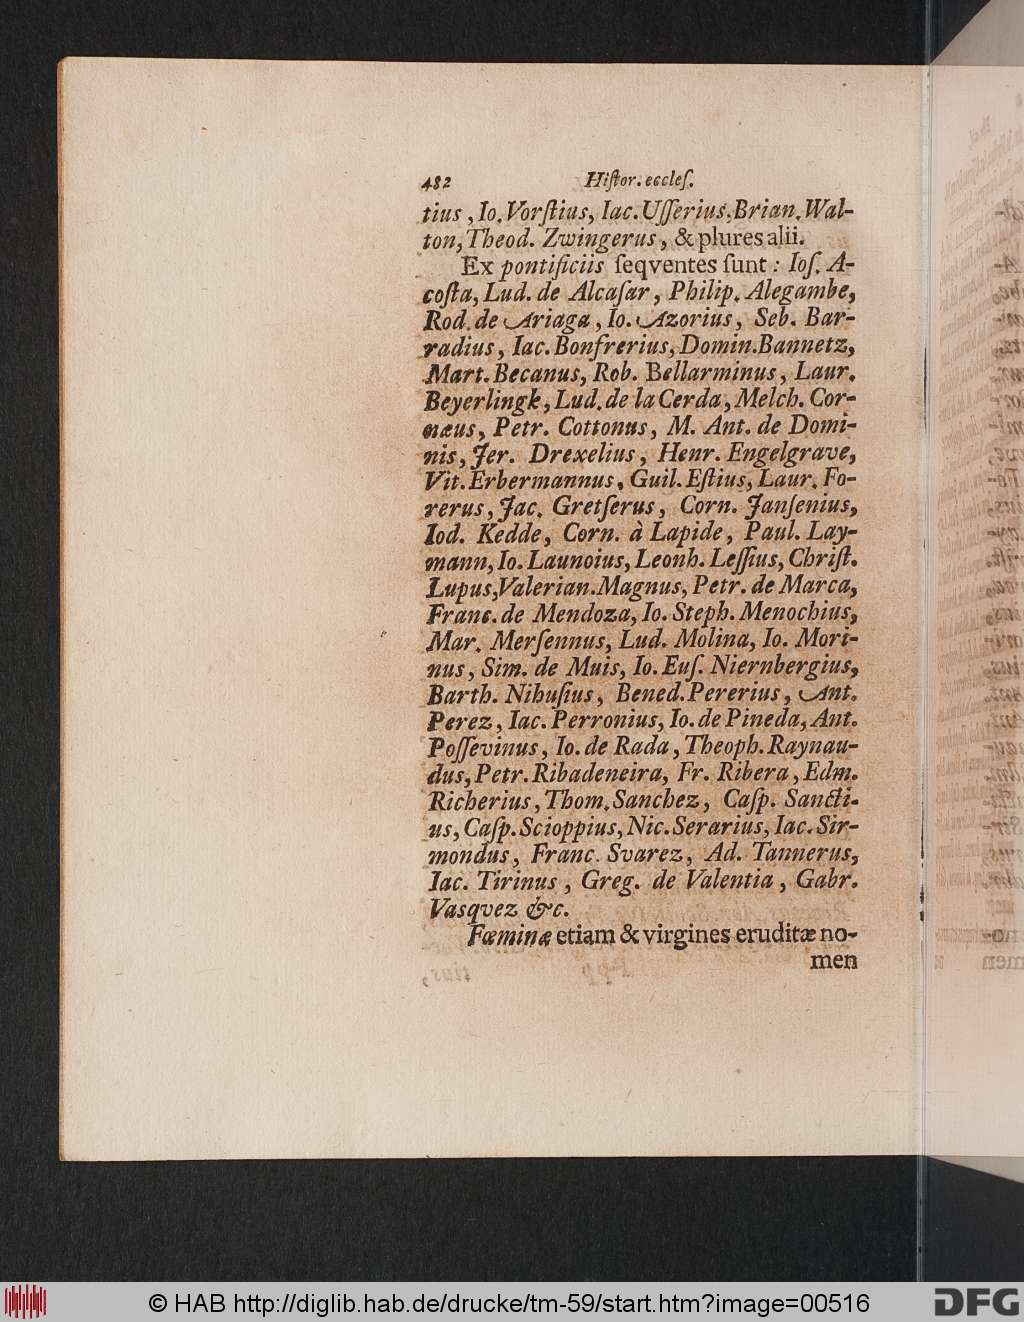 482 Hiſtor. eccleſ.
tius, Io. Vorſtius, Iac. Uſſerius, Brian. Wal-
ton, Theod. Zwingerus, & plures alii.
Ex pontificiis ſeqventes ſunt: Ioſ. A-
coſta, Lud. de Alcaſar, Philip. Alegambe,
Rod. de Ariaga, Io. Azorius, Seb. Bar-
radius, Iac. Bonfrerius, Domin. Bannetz,
Mart. Becanus, Rob. Bellarminus, Laur.
Beyerlingk, Lud. de la Cerda, Melch. Cor-
næus, Petr. Cottonus, M. Ant. de Domi-
nis, Jer. Drexelius, Henr. Engelgrave,
Vit. Erbermannus, Guil. Eſtius, Laur. Fo-
rerus, Jac. Gretſerus, Corn. Janſenius,
Iod. Kedde, Corn. à Lapide, Paul. Lay-
mann, Io. Launoius, Leonh. Leſſius, Chriſt.
Lupus, Valerian. Magnus, Petr. de Marca,
Franc. de Mendoza, Io. Steph. Menochius,
Mar. Merſennus, Lud. Molina, Io. Mori-
nus, Sim. de Muis, Io. Euſ. Niernbergius,
Barth. Nihuſius, Bened. Pererius, Ant.
Perez, Iac. Perronius, Io. de Pineda, Ant.
Poſſevinus, Io. de Rada, Theoph. Raynau-
dus, Petr. Ribadeneira, Fr. Ribera, Edm.
Richerius, Thom. Sanchez, Caſp. Sancti-
us, Caſp. Scioppius, Nic. Serarius, Iac. Sir-
mondus, Franc. Svarez, Ad. Tannerus,
Iac. Tirinus, Greg. de Valentia, Gabr.
Vasqvez &c.
Fœminæ etiam & virgines eruditæ no-
men
© HAB http://diglib.hab.de/drucke/tm-59/start.htm?image=00516
DFG